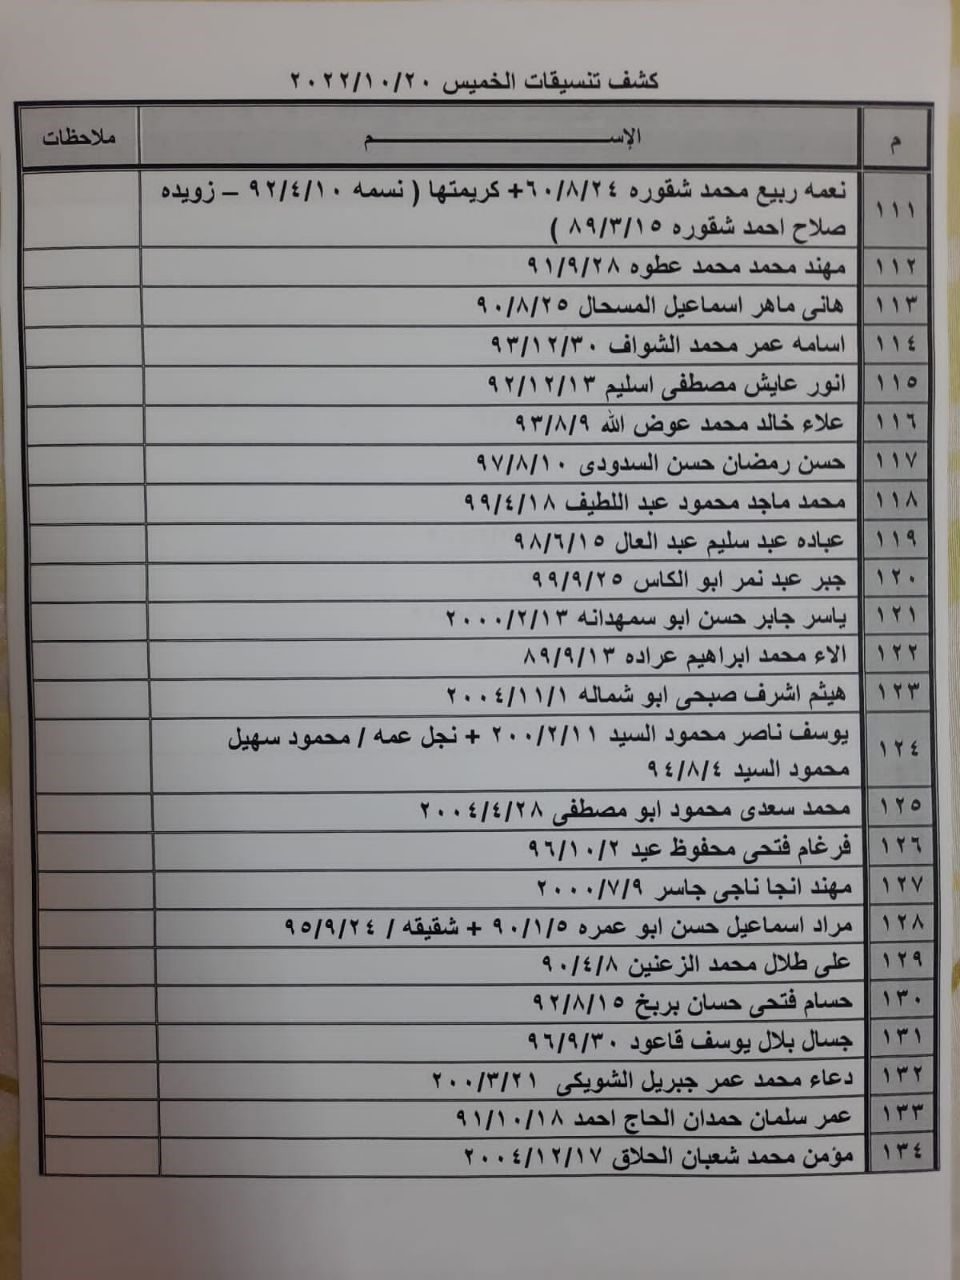 كشف تنسيقات الخميس ٢٠٢٢/١٠/٢٠
م الإســـــــــم ملاحظات
١١١ نعمه ربيع محمد شقوره ٦٠/٨/٢٤+ كريمتها ( نسمه ٩٢/٤/١٠ – زويده
صلاح احمد شقوره ٨٩/٣/١٥ )
١١٢ مهند محمد محمد عطوه ٩١/٩/٢٨
١١٣ هانى ماهر اسماعيل المسحال ٩٠/٨/٢٥
١١٤ اسامه عمر محمد الشواف ٩٣/١٢/٣٠
١١٥ انور عايش مصطفى اسليم ٩٢/١٢/١٣
١١٦ علاء خالد محمد عوض الله ٩٣/٨/٩
١١٧ حسن رمضان حسن السدودى ٩٧/٨/١٠
١١٨ محمد ماجد محمود عبد اللطيف ٩٩/٤/١٨
١١٩ عباده عبد سليم عبد العال ٩٨/٦/١٥
١٢٠ جبر عبد نمر ابو الكاس ٩٩/٩/٢٥
١٢١ ياسر جابر حسن ابو سمهدانه ٢٠٠٠/٢/١٣
١٢٢ الاء محمد ابراهيم عراده ٨٩/٩/١٣
١٢٣ هيثم اشرف صبحى ابو شماله ٢٠٠٤/١١/١
١٢٤ يوسف ناصر محمود السيد ٢٠٠/٢/١١ + نجل عمه / محمود سهيل
محمود السيد ٩٤/٨/٤
١٢٥ محمد سعدى محمود ابو مصطفى ٢٠٠٤/٤/٢٨
١٢٦ فرغام فتحى محفوظ عيد ٩٦/١٠/٢
١٢٧ مهند انجا ناجى جاسر ٢٠٠٠/٧/٩
١٢٨ مراد اسماعيل حسن ابو عمره ٩٠/١/٥ + شقيقه / ٩٥/٩/٢٤
١٢٩ على طلال محمد الزعنين ٩٠/٤/٨
١٣٠ حسام فتحى حسان بربخ ٩٢/٨/١٥
١٣١ جسال بلال يوسف قاعود ٩٦/٩/٣٠
١٣٢ دعاء محمد عمر جبريل الشويكى ٢٠٠/٣/٢١
١٣٣ عمر سلمان حمدان الحاج احمد ٩١/١٠/١٨
١٣٤ مؤمن محمد شعبان الحلاق ٢٠٠٤/١٢/١٧